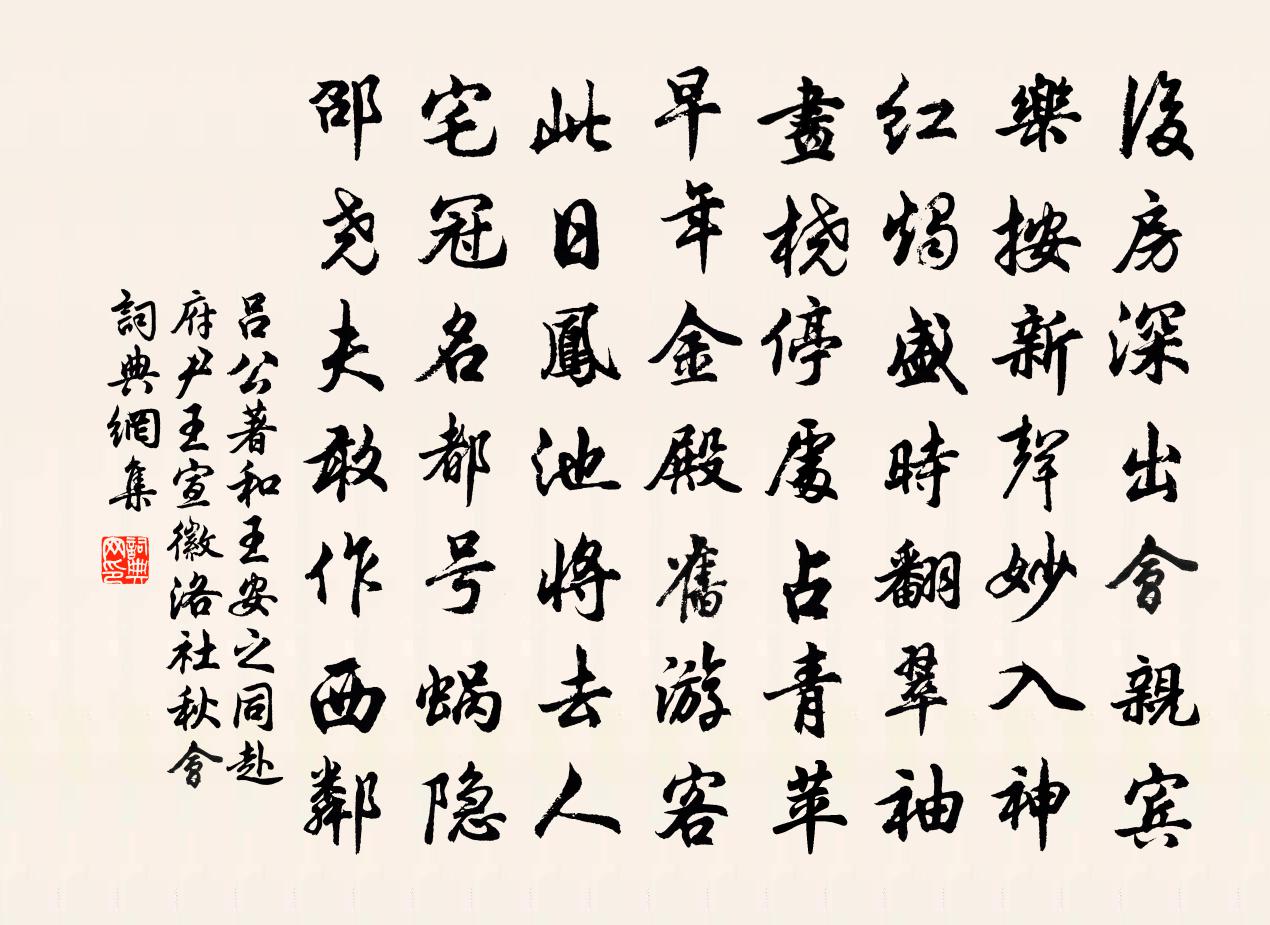 後房深出會親賓
樂按新聲妙入神
紅燭盛時翻翠袖
畫橈停處占青苹
早年金殿舊游客
此日鳳池將去人
宅冠名都号蝸隐
邵尧夫敢作西鄰
呂公著和王安之同赴
府尹王宣徽洛社秋會
詞典網集
詞典网印